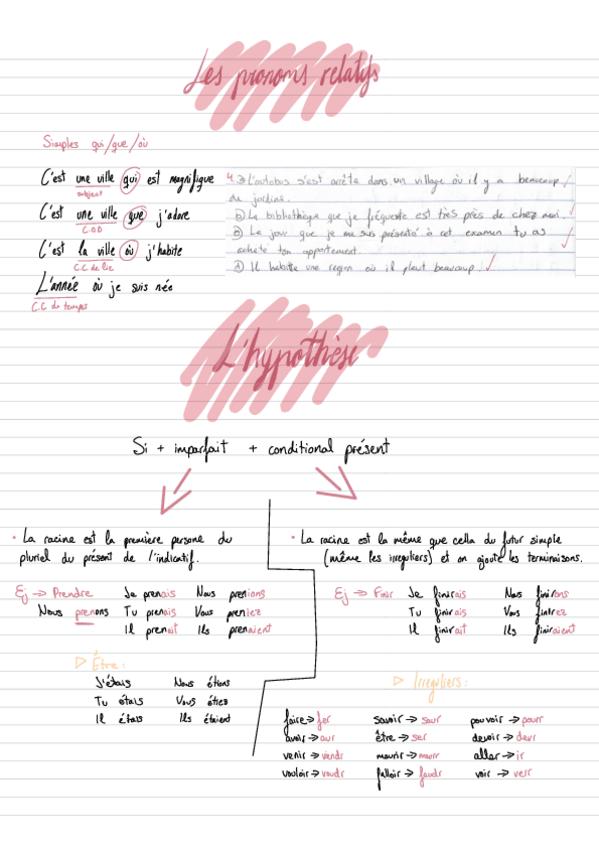 Les pronoms relatifs
Simples qui/que/où
C'est une ville qui est magnifique
subject
C'est une ville que j'adore
C.O.D
C'est la ville où j'habite
C.C de lie
L'année où je suis née
C.C de temps
4. a) L'autobus s'est arrêté dans un village où il y a beaucoup
de jardins.
b) La bibliothèque que je fréquente est très près de chez moi.
c) Le jour que je me suis présenté à cet examen tu as
acheté ton appartement.
d) Il habitte une region où il pleut beaucoup.
L'hypothèse
Si + imparfait + conditional présent
· La racine est la première persone du
pluriel du présent de l'indicatif.
Ej → Prendre Je prenais Nous prenions
Nous prenons Tu prenais Vous preniez
Il prenait Ils prenaient
▷ Être:
J'étais Nous étions
Tu étais Vous étiez
Il était Ils étaient
· La racine est la même que cella du futur simple
(même les irreguliers) et on ajoute les terminaisons.
Ej → Finir Je finirais Nous finirons
Tu finirais Vous finirez
Il finirait Ils finiraient
▷ Irreguliers:
faire → fer savoir → saur pouvoir → pourr
avoir → aur être → ser devoir → devr
venir → viendr mourir → mourr aller → ir
vouloir → voudr falloir → faudr voir → verr